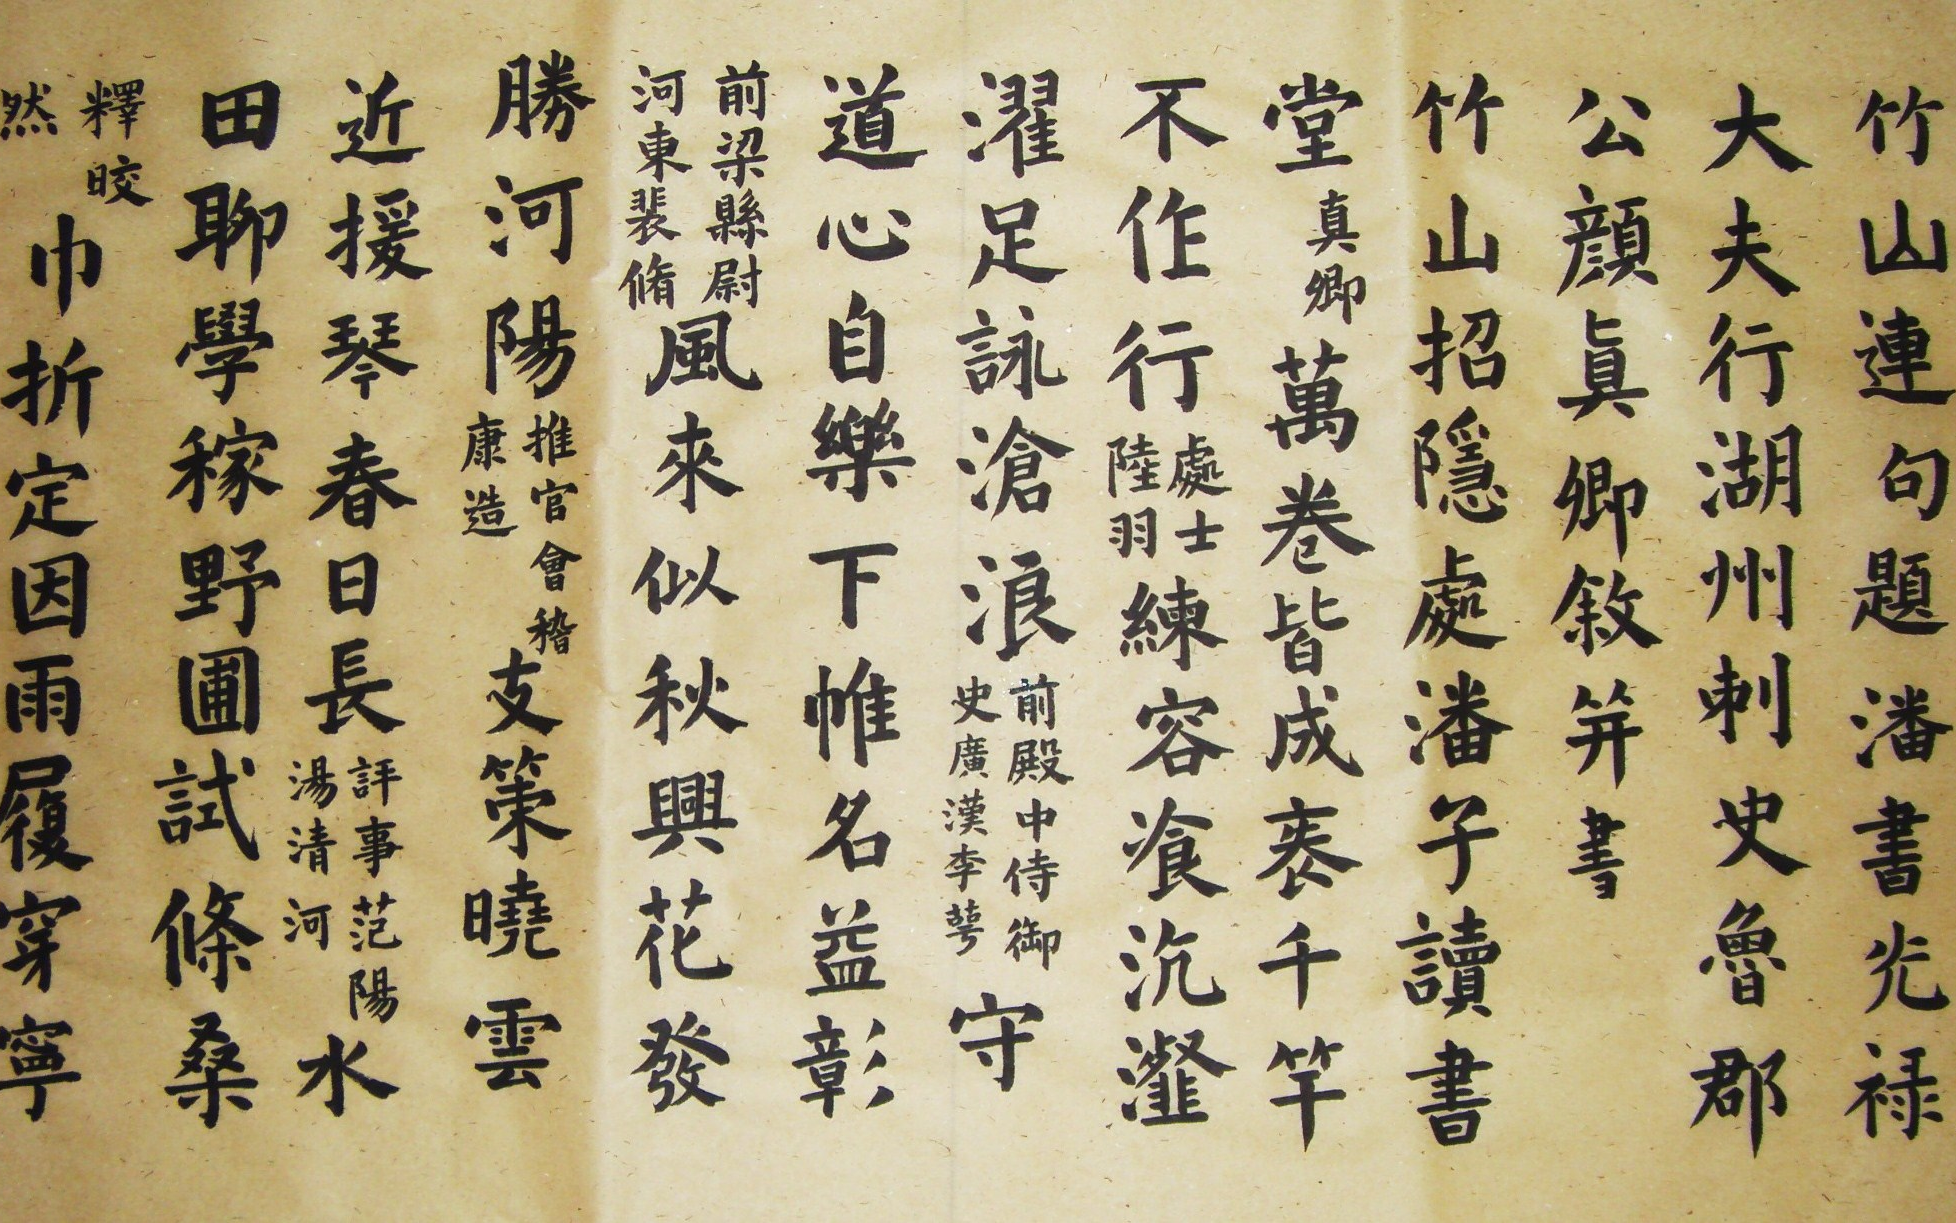 竹山連句題潘書光禄
大夫行湖州刺史魯郡
公顔眞卿敘并書
竹山招隱處潘子讀書
堂真卿萬卷皆成袠千竿
不作行處士陸羽練容飡沆瀣
濯足詠滄浪前殿中侍御史廣漢李萼守
道心自樂下帷名益彰
前梁縣尉河東裴脩風來似秋興花發
勝河陽推官會稽康造支策曉雲
近援琴春日長評事范陽湯清河水
田聊學稼野圃試條桑
釋晈然巾折定因雨履穿寧